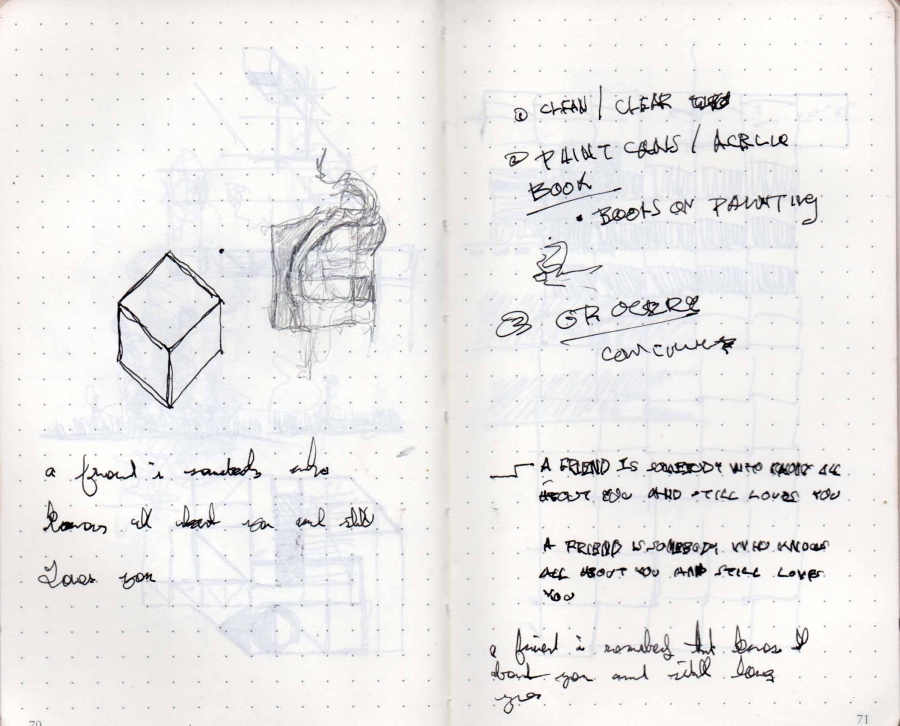 a friend is somebody who
knows all about you and still
Loves you
70
① CLEAN / CLEAR
② PAINT CANS / ACRLIC
BOOK
• BOOKS ON PAINTING
③ GROCERY
A FRIEND IS SOMEBODY WHO KNOWS ALL
ABOUT YOU AND STILL LOVES YOU
A FRIEND IS SOMEBODY WHO KNOWS
ALL ABOUT YOU AND STILL LOVES
YOU
a friend is somebody that knows all
about you and still loves
you
71